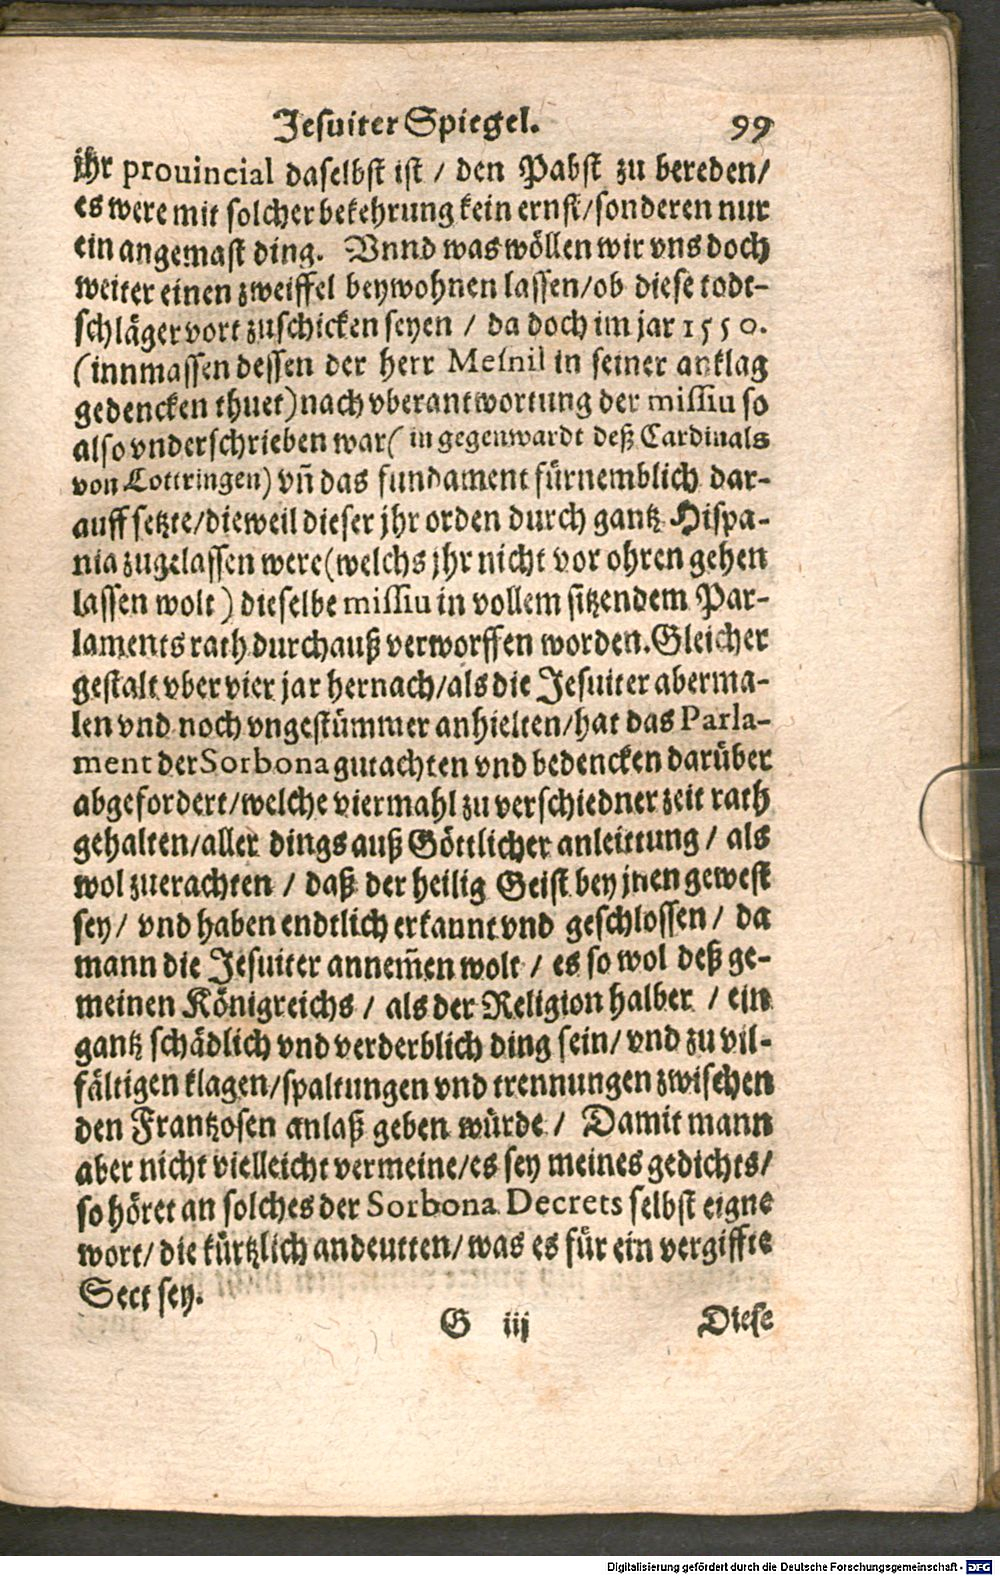 Jesuiter Spiegel. 99
jhr prouincial daselbst ist / den Pabst zu bereden/
es were mit solcher bekehrung kein ernst/sonderen nur
ein angemast ding. Vnnd was wöllen wir vns doch
weiter einen zweiffel beywohnen lassen/ob diese todt-
schläger vort zuschicken seyen / da doch im jar 1550.
(innmassen dessen der herr Mesnil in seiner anklag
gedencken thuet) nach vberantwortung der missiu so
also vnderschrieben war( in gegenwardt deß Cardinals
von Lottringen) vñ das fundament fürnemblich dar-
auff setzte/dieweil dieser jhr orden durch gantz Hispa-
nia zugelassen were(welchs jhr nicht vor ohren gehen
lassen wolt) dieselbe missiu in vollem sitzendem Par-
laments rath durchauß verworffen worden. Gleicher
gestalt vber vier jar hernach/als die Jesuiter aberma-
len vnd noch vngestümmer anhielten/hat das Parla-
ment der Sorbona gutachten vnd bedencken darüber
abgefordert/welche viermahl zu verschiedner zeit rath
gehalten/aller dings auß Göttlicher anleittung / als
wol zuerachten / daß der heilig Geist bey jnen gewest
sey/ vnd haben endtlich erkannt vnd geschlossen/ da
mann die Jesuiter annem̃en wolt / es so wol deß ge-
meinen Königreichs / als der Religion halber / ein
gantz schädlich vnd verderblich ding sein/ vnd zu vil-
fältigen klagen/spaltungen vnd trennungen zwischen
den Frantzosen anlaß geben würde / Damit mann
aber nicht vielleicht vermeine/es sey meines gedichts/
so höret an solches der Sorbona Decrets selbst eigne
wort/ die kürtzlich andeutten/ was es für ein vergiffte
Sect sey.
G iij Diese
Digitalisierung gefördert durch die Deutsche Forschungsgemeinschaft - DFG